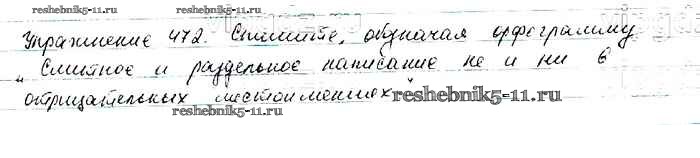 reshebnik5-11.ru
Упражнение 472. Спишите, обозначая орфограмму
„Слитное и раздельное написание не и ни в
отрицательных местоимениях" reshebnik5-11.ru
reshebnik5-11.ru